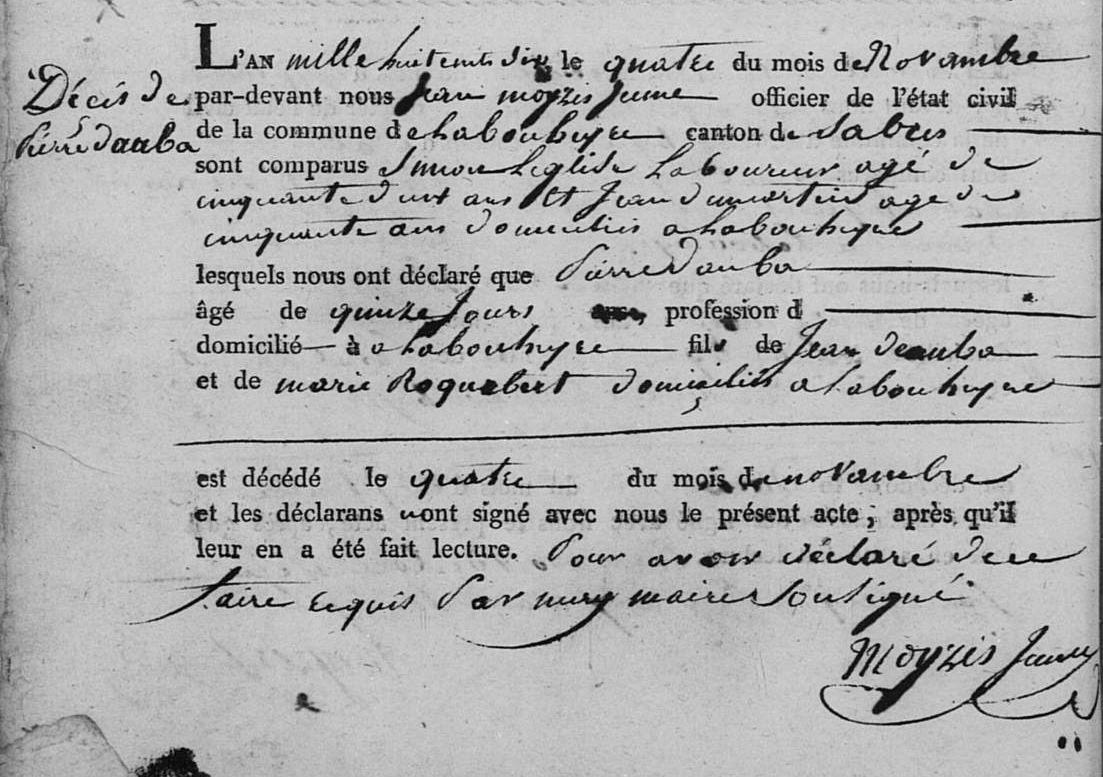 L'AN mille huit cents dix le quatre du mois de Novambre
Décès de
Pierre dauba
par-devant nous Jean moyzis Jeune officier de l'état civil
de la commune de Labouheyre canton de Sabres
sont comparus Simon Leglise Laboureur agé de
cinquante deux ans Et Jean dumartin agé de
cinquante ans domiciliés a Labouheyre
lesquels nous ont déclaré que Pierre dauba
âgé de quinze Jours ans, profession d
domicilié à a Labouheyre fils de Jean deauba
et de marie Roquebert domiciliés a Labouheyre
est décédé le quatre du mois de novambre
et les déclarans n'ont signé avec nous le présent acte, après qu'il
leur en a été fait lecture. Pour avoir déclaré ne
faire requis Par maire Soutigné
Moyzis Jeune